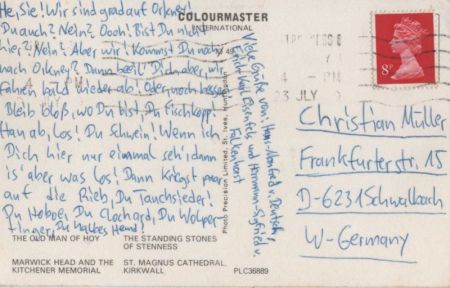 He, Sie! Wir sind grad auf Orkney!
Du auch? Nein? Oooh! Bist Du nich
hier? Nein? Aber wir! Kommst Du noch
nach Orkney? Dann beeil' Dich, aber wir
fahren bald wieder ab! Oder noch besser
Bleib bloß, wo Du bist, Du Fischkopf!
Hau ab, Los! Du Schwein! Wenn ich
Dich hier nur einmal seh', dann
is' aber was los! Dann kriegst paar
auf die Rieb, Du Tauchsieder!
Du Hoboe, Du Clochard, Du Wolper-
tinger, Du halbes Hemd!
THE OLD MAN OF HOY
THE STANDING STONES
OF STENNESS
MARWICK HEAD AND THE
KITCHENER MEMORIAL
ST. MAGNUS CATHEDRAL
KIRKWALL
PLC36889
COLOURMASTER
INTERNATIONAL
Photo Precision Limited, St. Ives, Huntingdon
Viele Grüße von: Hans-Manfred v. Deutsch!
und Hermann-Sigfried v.
Falkenhorst
8P
JULY
Christian Müller
Frankfurterstr. 15
D-6231 Schwalbach
W-Germany